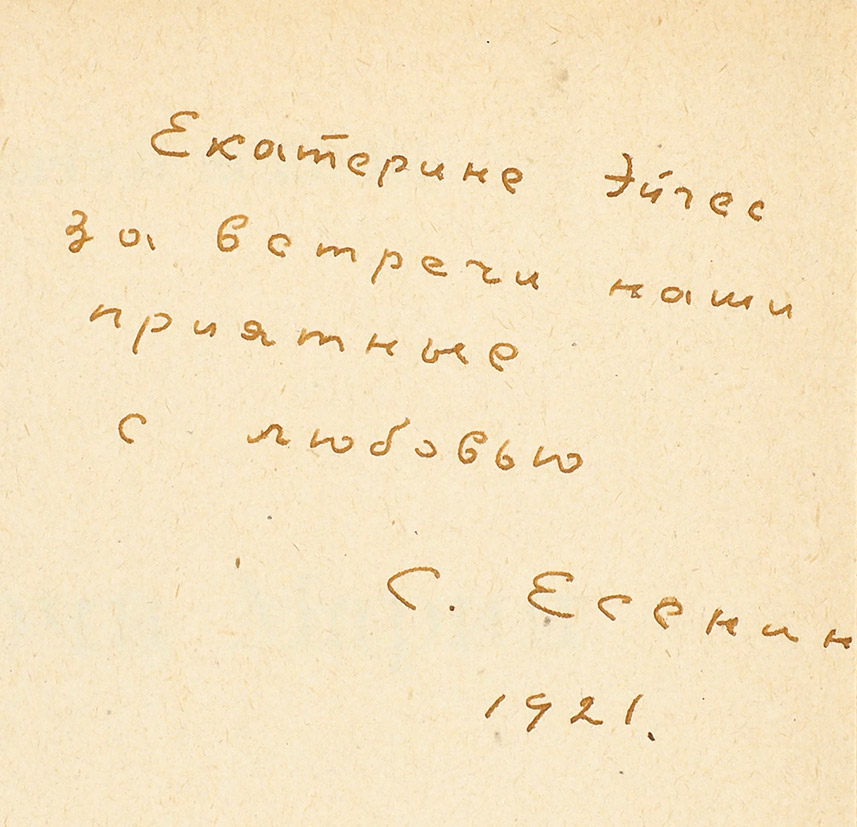 Екатерине Эйгес
за встречи наши
приятные
с любовью
С. Есенин
1921.